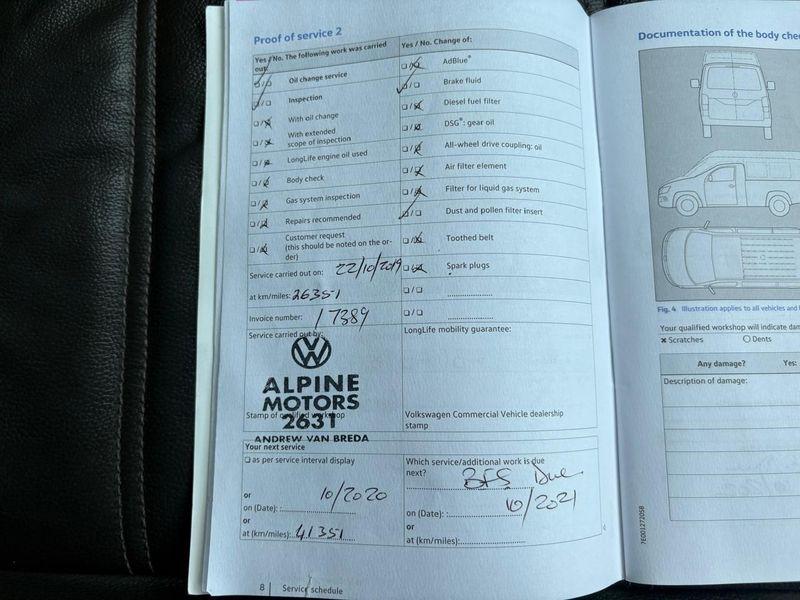 Proof of service 2
Yes / No. The following work was carried out:
Oil change service
Inspection
With oil change
With extended
scope of inspection
LongLife engine oil used
Body check
Gas system inspection
Repairs recommended
Customer request
(this should be noted on the or-
der)
Service carried out on: 22/10/2019
at km/miles: 26351
Invoice number: 17389
Service carried out by:
ALPINE
MOTORS
2631
Stamp of qualified workshop
ANDREW VAN BREDA
Yes / No. Change of:
AdBlue®
Brake fluid
Diesel fuel filter
DSG®: gear oil
All-wheel drive coupling: oil
Air filter element
Filter for liquid gas system
Dust and pollen filter insert
Toothed belt
Spark plugs
LongLife mobility guarantee:
Volkswagen Commercial Vehicle dealership
stamp
Your next service
as per service interval display
or
10/2020
on (Date):
or
at (km/miles): 41351
Which service/additional work is due
next? BFS Due
10/2021
on (Date):
or
at (km/miles):
8 Service schedule
Documentation of the body che
Fig. 4 Illustration applies to all vehicles and
Your qualified workshop will indicate dam
Scratches Dents
Any damage? Yes:
Description of damage:
7E0012720SB